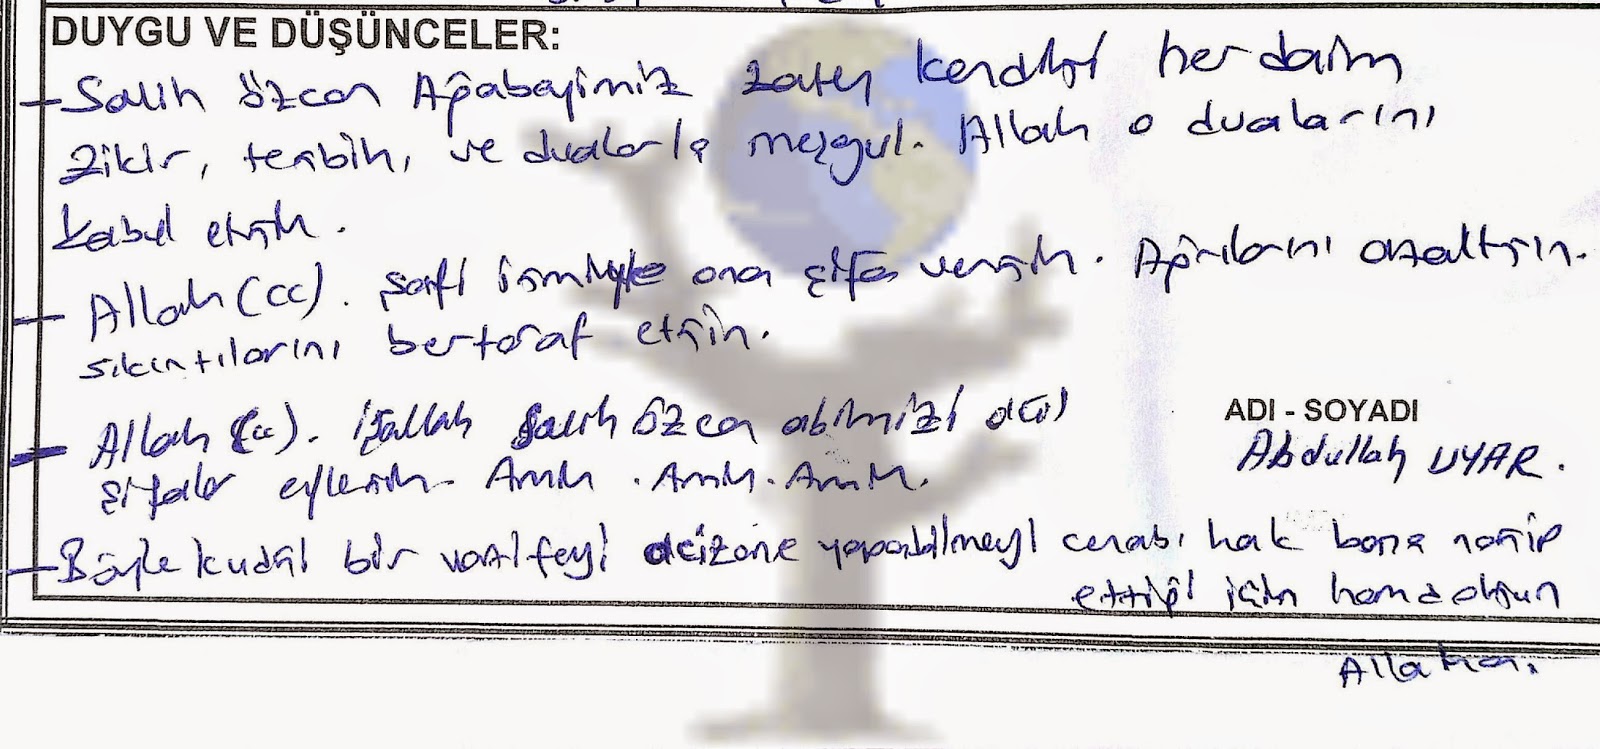 DUYGU VE DÜŞÜNCELER:
- Salih özcan Ağabeyimiz zaten kendisi her daim
zikir, tesbih, ve dualarla meşgul. Allah o dualarını
kabul etsin.
- Allah (cc). şafi ismiyle ona şifa versin. Ağrılarını azaltsın.
sıkıntılarını bertaraf etsin.
- Allah (cc). işallah Salih özcan abimizi acil
şifalar eylesin. Amin. Amin. Amin.
ADI - SOYADI
Abdullah UYAR.
- Böyle kudsi bir vazifeyi acizane yapabilmeyi cenabı hak bana nasip
ettiği için hamdolsun
Allaha.